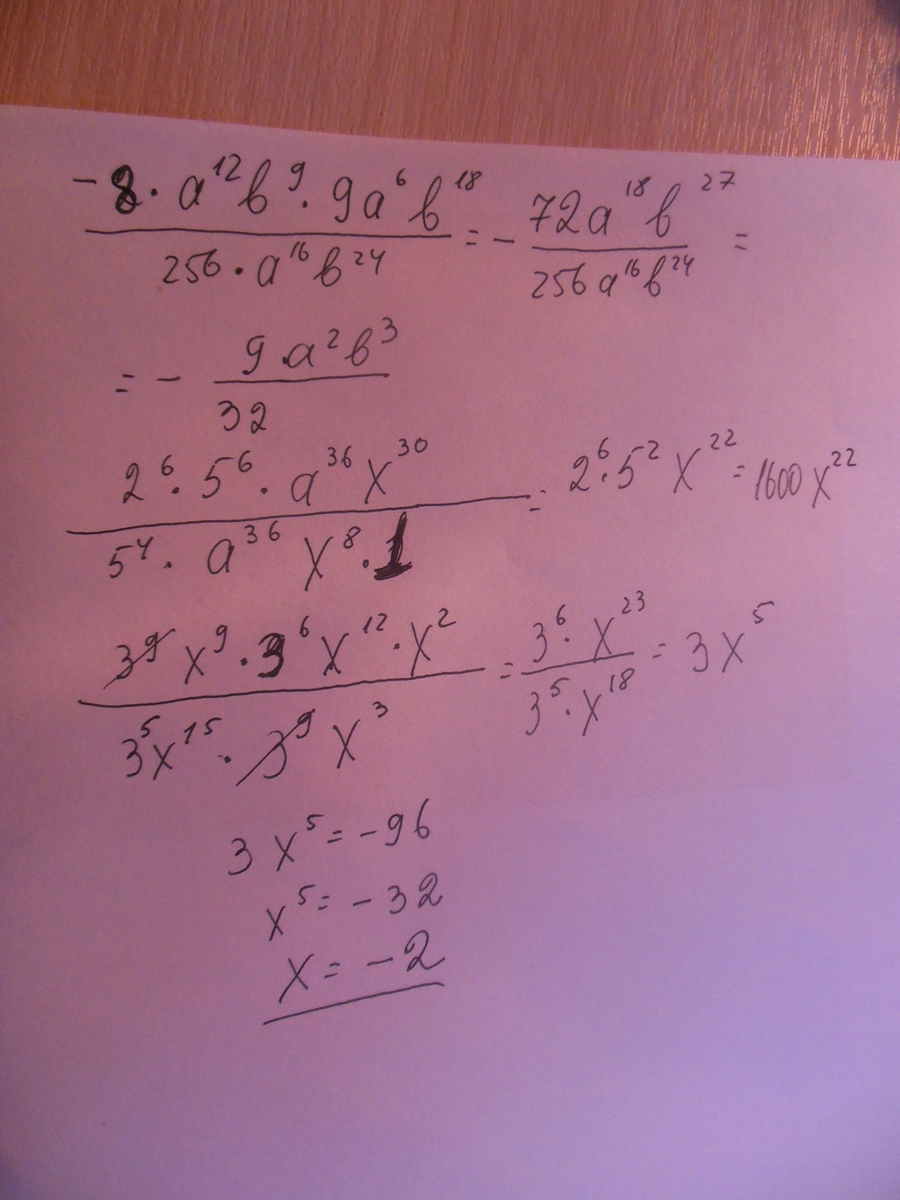 -8·a¹²b⁹·9a⁶b¹⁸ / 256·a¹⁶b²⁴ = - 72a¹⁸b²⁷ / 256a¹⁶b²⁴ =
= - 9·a²b³ / 32
2⁶·5⁶·a³⁶x³⁰ / 5⁴·a³⁶x⁸·1 = 2⁶·5²x²² = 1600x²²
3⁹x⁹·3⁶x¹²·x² / 3⁵x¹⁵·3⁹x³ = 3⁶·x²³ / 3⁵·x¹⁸ = 3x⁵
3x⁵ = -96
x⁵ = -32
x = -2